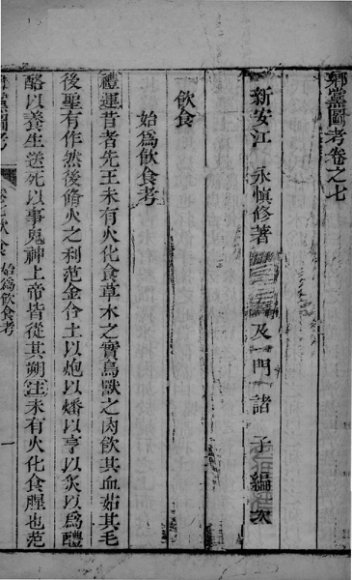 鄉黨圖考卷之七
新安江　永慎修著　及門諸子編次
飲食
始為飲食考
禮運昔者先王未有火化食草木之實鳥獸之肉飲其血茹其毛
後聖有作然後脩火之利范金合土以炮以燔以亨以炙以為醴
酪以養生送死以事鬼神上帝皆從其朔注未有火化食腥也范
鄉黨圖考　卷七飲食　始為飲食考　一